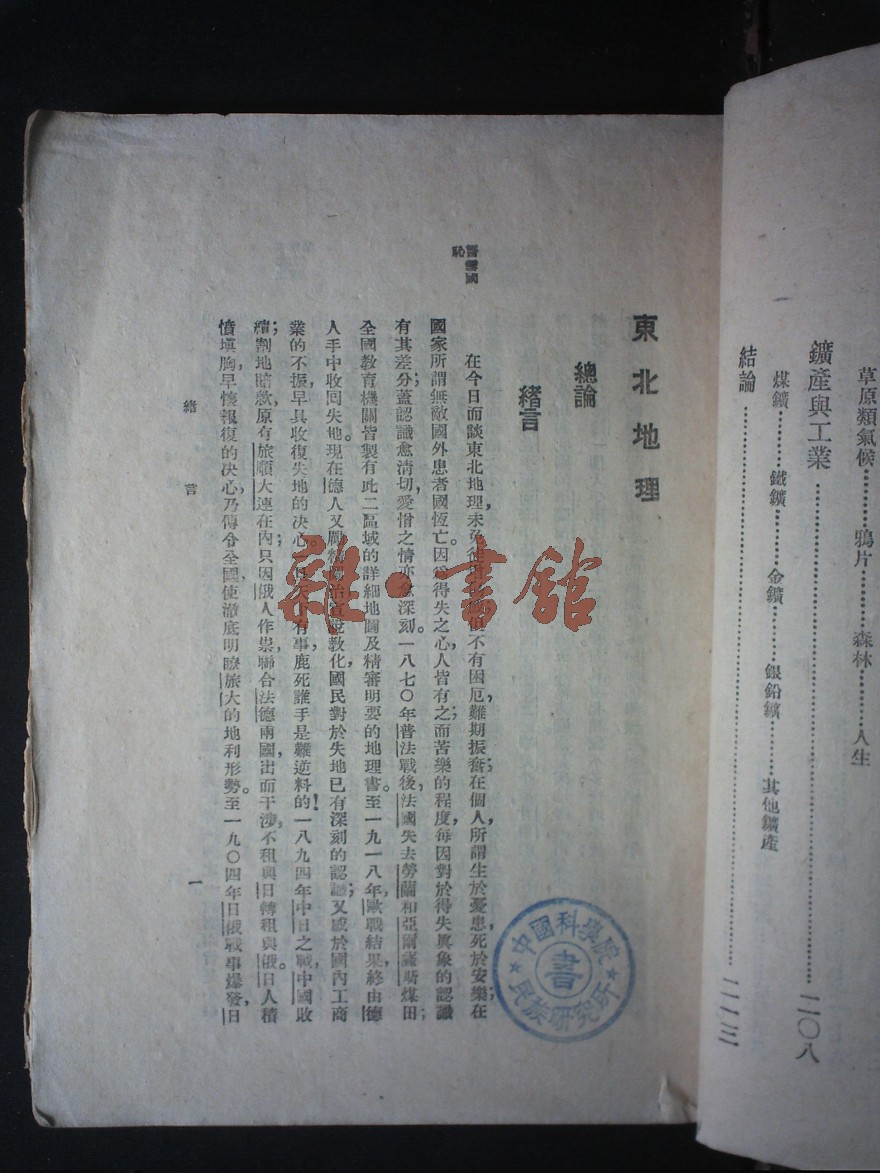 草原類氣候………鴉片………森林………人生
鑛產與工業………二〇八
煤鑛………鐵鑛………金鑛………銀鉛鑛………其他鑛產
結論………二一三
東北地理
總論
緒言
誓雪國恥
在今日而談東北地理,未免但不有困厄,難期振奮;在個人所謂生於憂患,死於安樂;在
國家所謂無敵國外患者國恆亡。因爲得失之心,人皆有之;而苦樂的程度,每因對於得失眞象的認識
有其差分;蓋認識愈清切,愛惜之情亦愈深刻。一八七〇年普法戰後,法國失去勞蘭和亞爾薩斯煤田;
全國敎育機關皆製有此二區域的詳細地圖及精審明要的地理書。至一九一八年,歐戰結果,終由德
人手中收回失地。現在德人又敎化,國民對於失地已有深刻的認識;又感於國內工商
業的不振,早具收復失地的決心。一旦天下有事,鹿死誰手,是難逆料的!一八九四年中日之戰,中國敗
績;割地賠款,原有旅順大連在內,只因俄人作祟,聯合法德兩國出而干涉,不租與日,轉租與俄。日人積
憤塡胸,早懷報復的決心,乃傳令全國,使澈底明瞭旅大的地利形勢。至一九〇四年日俄戰事爆發,日
緒言
一
中國科學院民族研究所
書
雜·書館